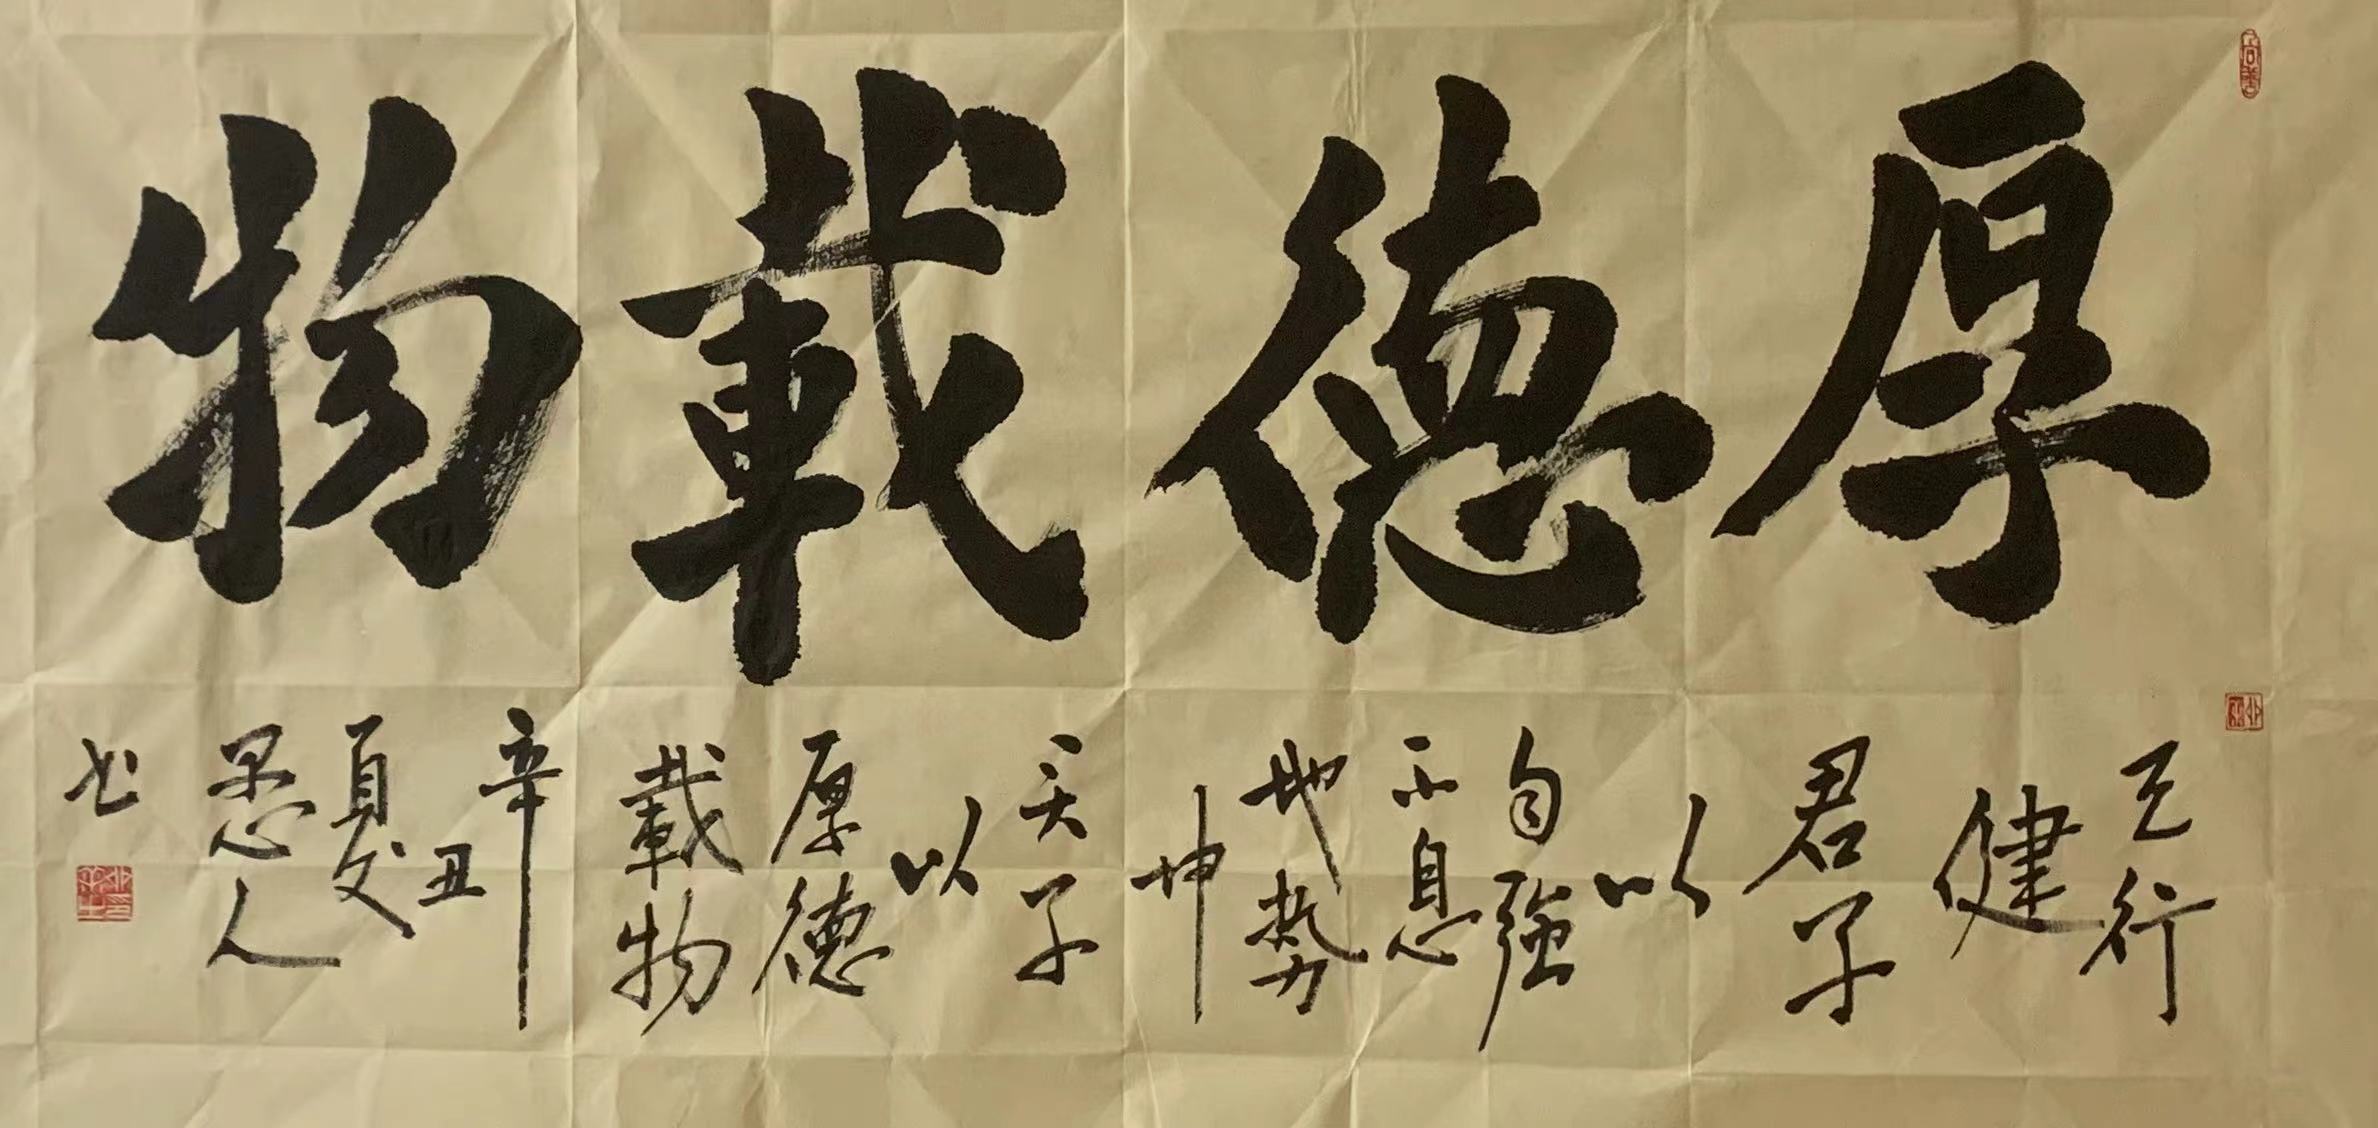 厚德載物
天行
健
君子
以
自強
不息
地势
坤
君子
以
厚德
載物
辛丑
夏
愚人
书